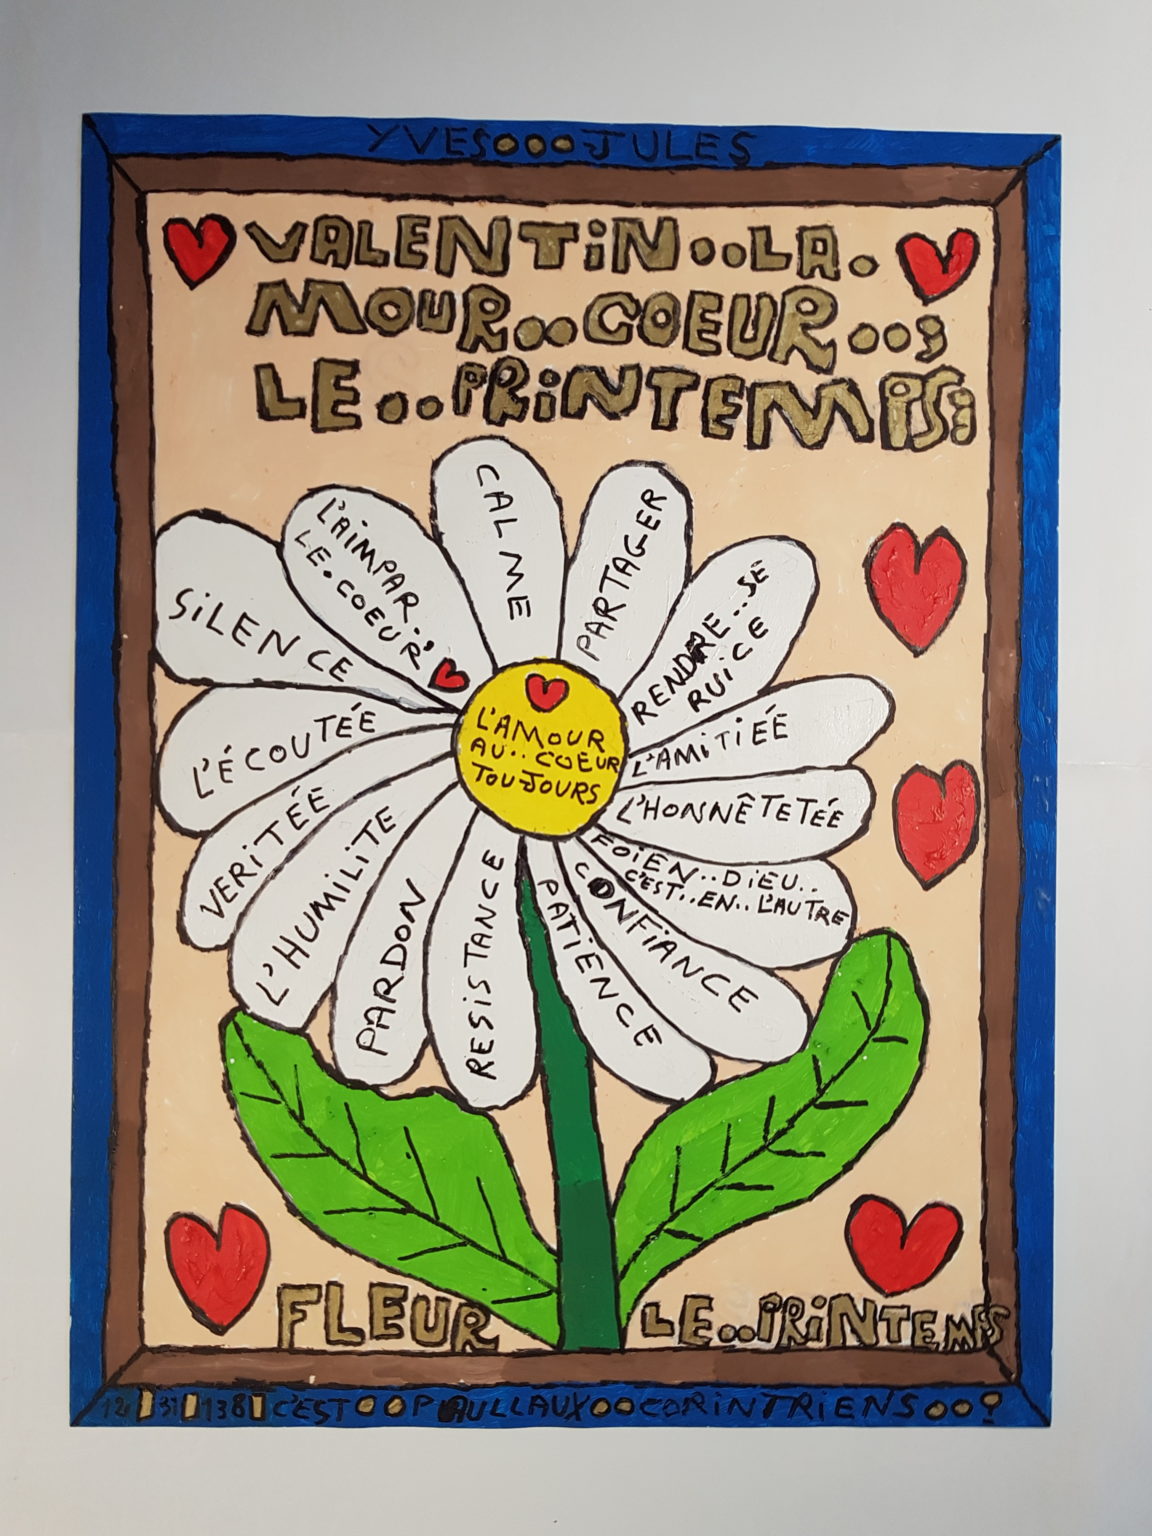 YVES...JULES
VALENTiN..LA.
MOUR..COEUR..;
LE..PRiNTEMPS;
CALME
PARTAGER
RENDRE..SE
RUiCE
L'AMiTiÉE
L'HONNÊTETÉE
FOiEN..DiEU..
C'EST..EN..L'AUTRE
CONFiANCE
PATiENCE
RESiSTANCE
PARDON
L'HUMiLiTE
VERiTÉE
L'ÉCOUTÉE
SiLENCE
L'AiMPAR.
LE.COEUR.
L'AMOUR
AU..COEUR
TOUJOURS
FLEUR LE..PRiNTEMPS
C'EST..PAULLAUX..CORiNTRiENS..?